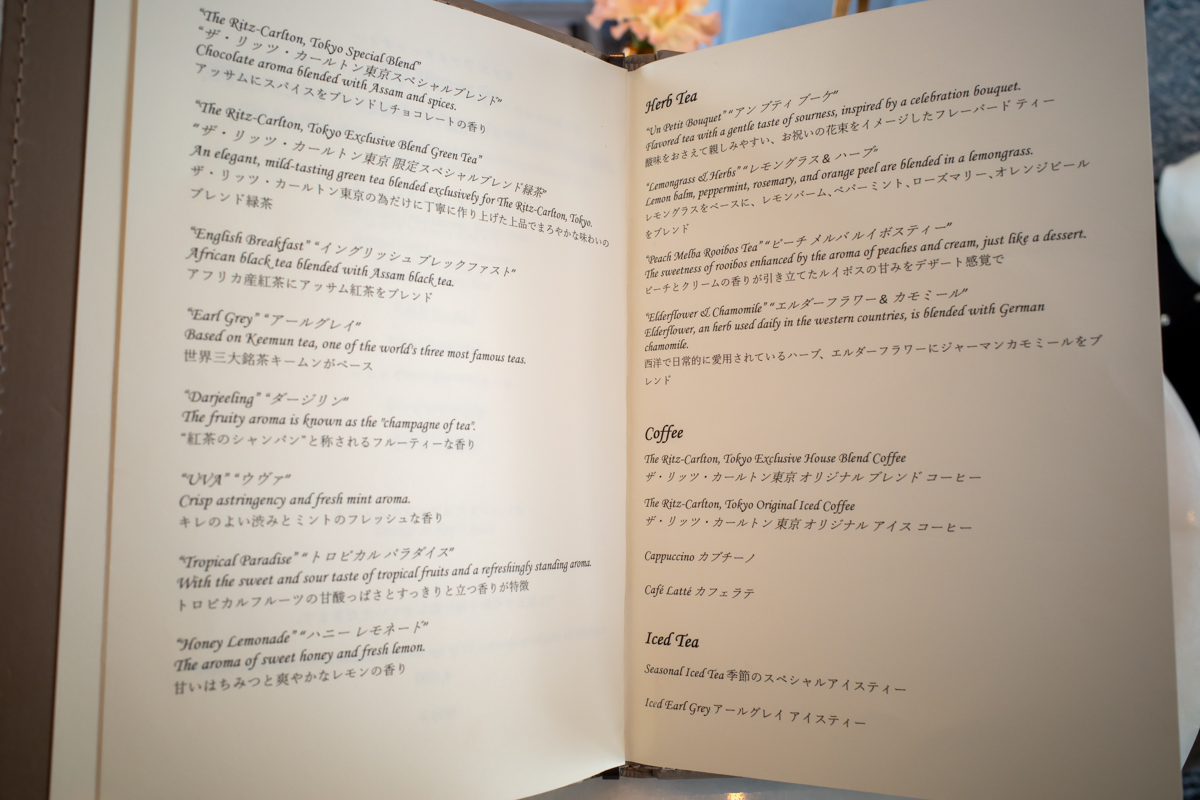 “The Ritz-Carlton, Tokyo Special Blend”
“ザ・リッツ・カールトン東京スペシャルブレンド”
Chocolate aroma blended with Assam and spices.
アッサムにスパイスをブレンドしチョコレートの香り
“The Ritz-Carlton, Tokyo Exclusive Blend Green Tea”
“ザ・リッツ・カールトン東京 限定スペシャルブレンド緑茶”
An elegant, mild-tasting green tea blended exclusively for The Ritz-Carlton, Tokyo.
ザ・リッツ・カールトン東京の為だけに丁寧に作り上げた上品でまろやかな味わいの
ブレンド緑茶
“English Breakfast” “イングリッシュ ブレックファスト”
African black tea blended with Assam black tea.
アフリカ産紅茶にアッサム紅茶をブレンド
“Earl Grey” “アールグレイ”
Based on Keemun tea, one of the world's three most famous teas.
世界三大銘茶キームンがベース
“Darjeeling” “ダージリン”
The fruity aroma is known as the "champagne of tea".
“紅茶のシャンパン”と称されるフルーティーな香り
“UVA” “ウヴァ”
Crisp astringency and fresh mint aroma.
キレのよい渋みとミントのフレッシュな香り
“Tropical Paradise” “トロピカル パラダイス”
With the sweet and sour taste of tropical fruits and a refreshingly standing aroma.
トロピカルフルーツの甘酸っぱさとすっきりと立つ香りが特徴
“Honey Lemonade” “ハニー レモネード”
The aroma of sweet honey and fresh lemon.
甘いはちみつと爽やかなレモンの香り
Herb Tea
“Un Petit Bouquet” “アン プティ ブーケ”
Flavored tea with a gentle taste of sourness, inspired by a celebration bouquet.
酸味をおさえて親しみやすい、お祝いの花束をイメージしたフレーバード ティー
“Lemongrass & Herbs” “レモングラス & ハーブ”
Lemon balm, peppermint, rosemary, and orange peel are blended in a lemongrass.
レモングラスをベースに、レモンバーム、ペパーミント、ローズマリー、オレンジピール
をブレンド
“Peach Melba Rooibos Tea” “ピーチ メルバ ルイボスティー”
The sweetness of rooibos enhanced by the aroma of peaches and cream, just like a dessert.
ピーチとクリームの香りが引き立てたルイボスの甘みをデザート感覚で
“Elderflower & Chamomile” “エルダーフラワー & カモミール”
Elderflower, an herb used daily in the western countries, is blended with German
chamomile.
西洋で日常的に愛用されているハーブ、エルダーフラワーにジャーマンカモミールをブ
レンド
Coffee
The Ritz-Carlton, Tokyo Exclusive House Blend Coffee
ザ・リッツ・カールトン東京 オリジナル ブレンド コーヒー
The Ritz-Carlton, Tokyo Original Iced Coffee
ザ・リッツ・カールトン 東京 オリジナル アイス コーヒー
Cappuccino カプチーノ
Café Latté カフェラテ
Iced Tea
Seasonal Iced Tea 季節のスペシャルアイスティー
Iced Earl Grey アールグレイ アイスティー